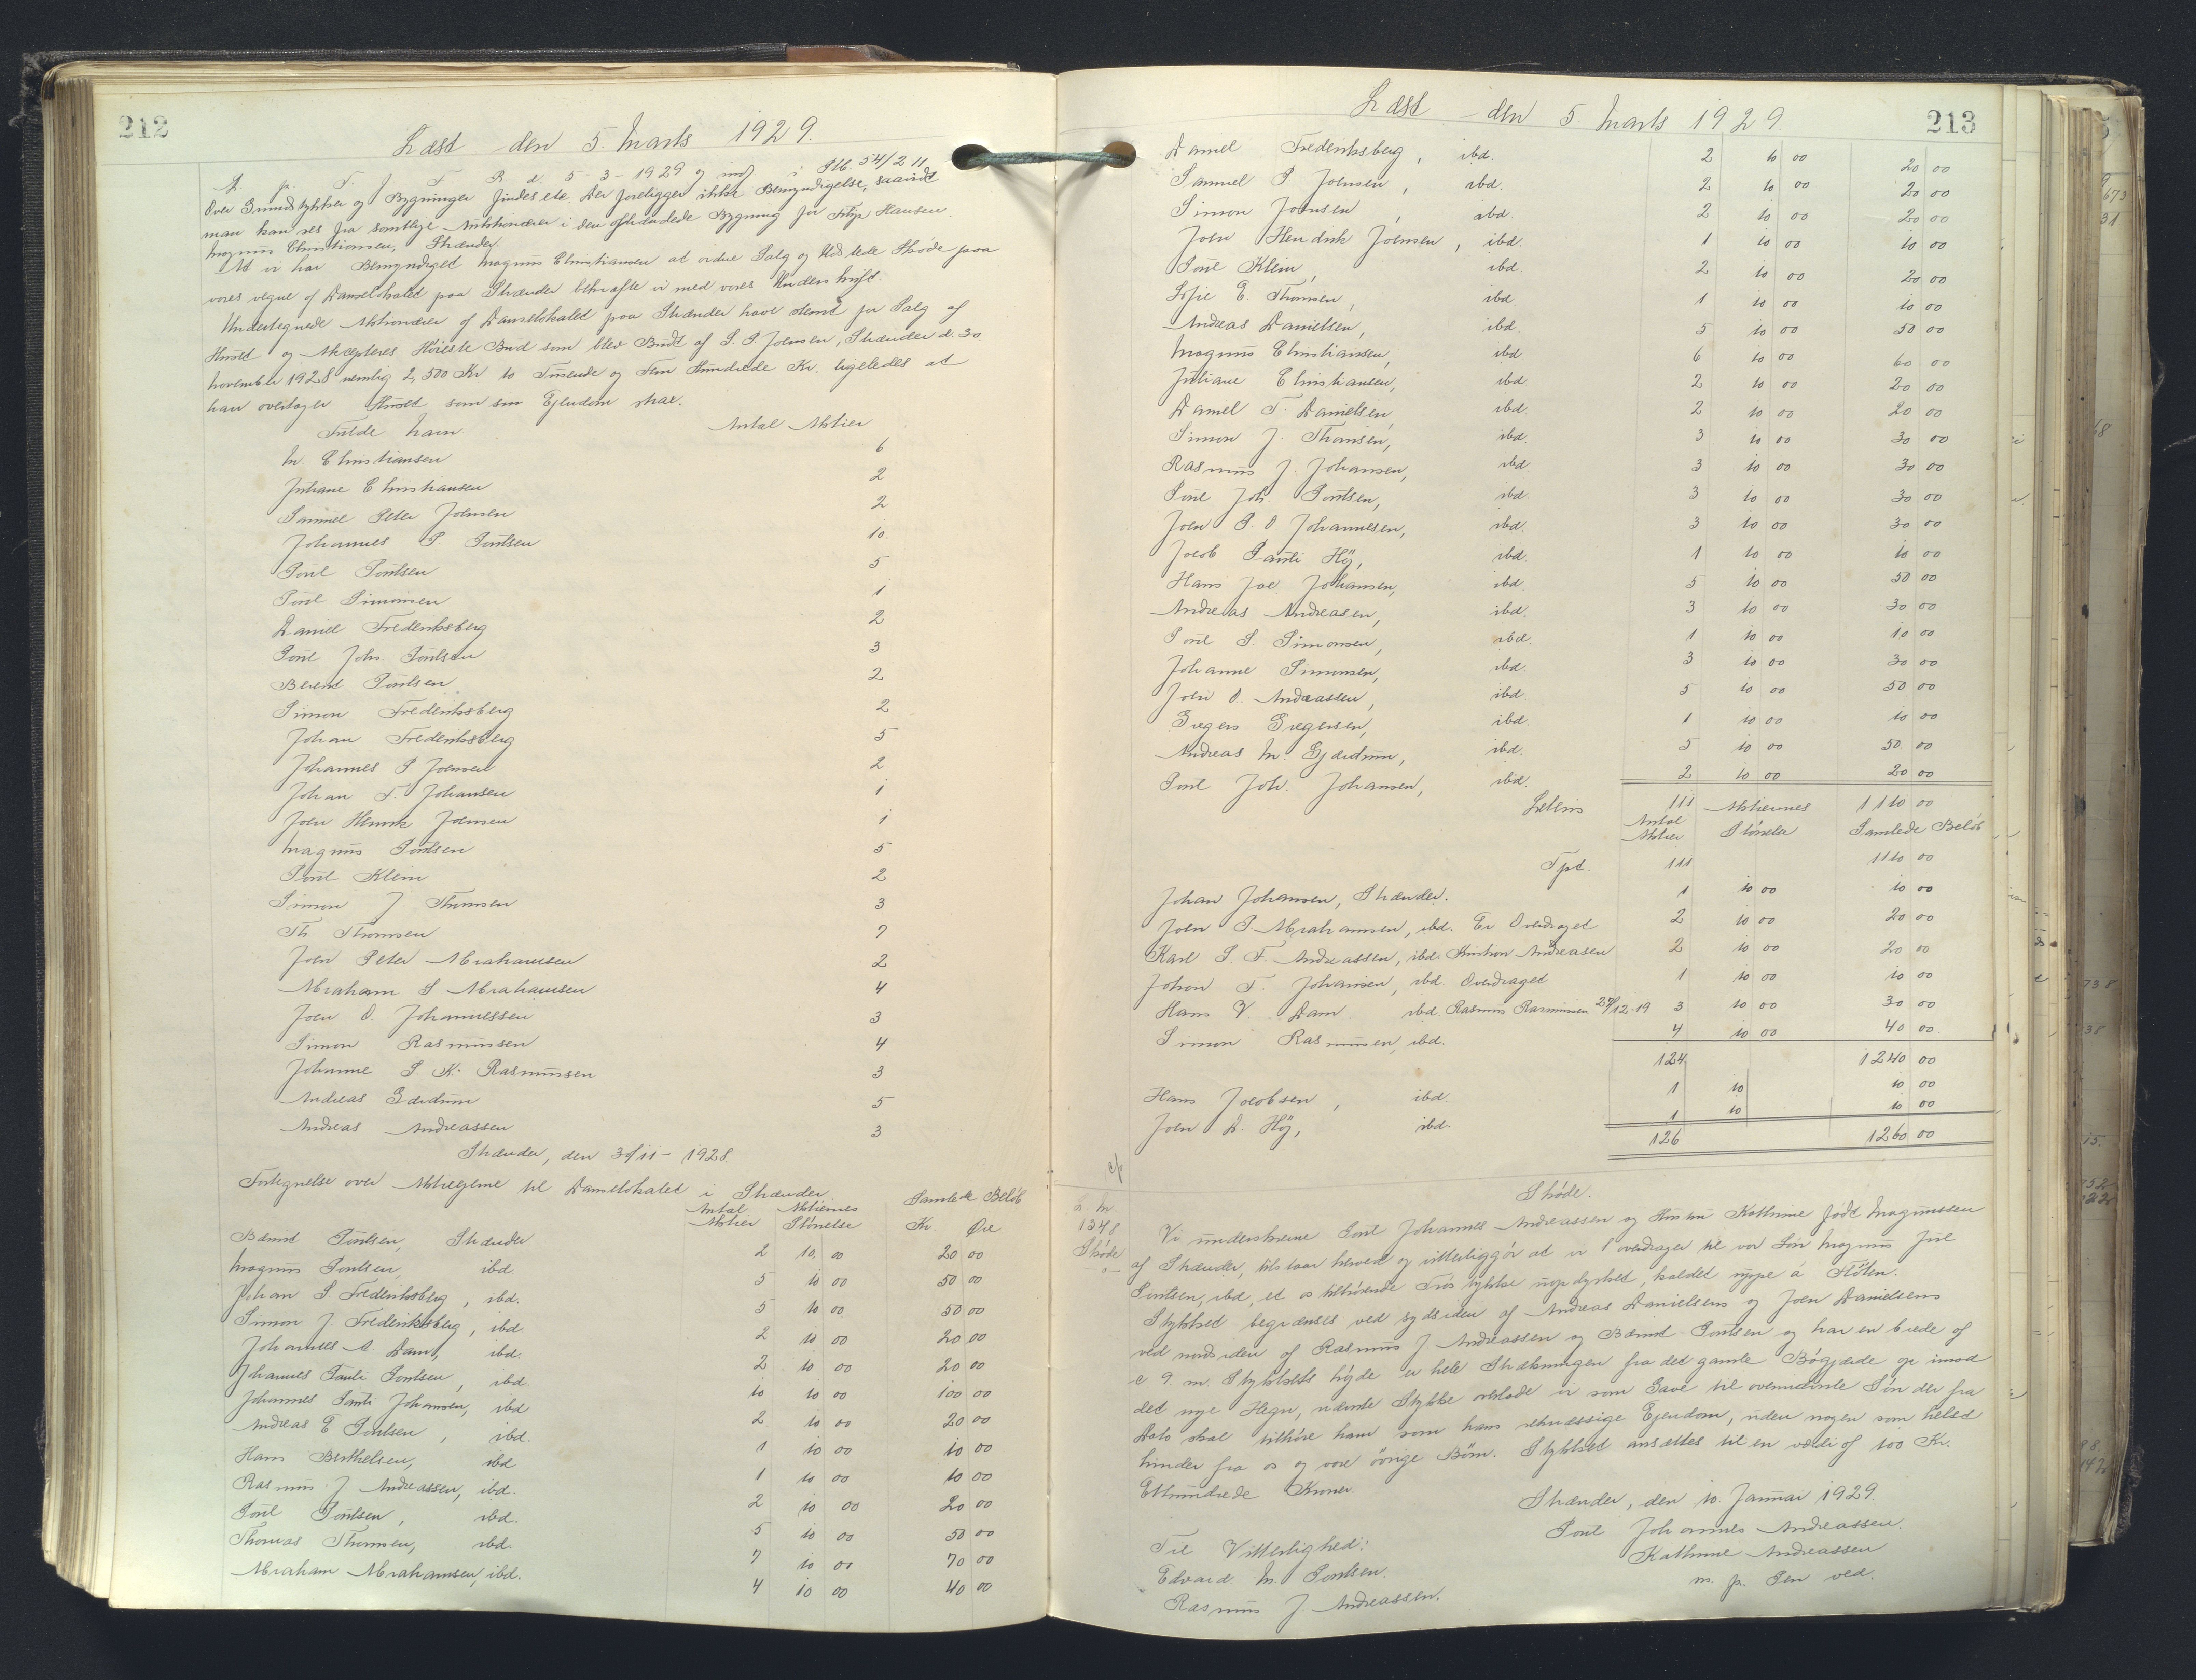 212
Læst den 5. Marts 1929.
T. F. R. d. 5-3-1929 og ind i Ptb. 54/211
Over Grundstykker og Bygninger findes ete. Der foreligger ikke Bemyndigelse, saavidt
man kan ses fra samtlige Aktionærer i den afhændede Bygning for Hansen
Magnus Christiansen, Strænder.
At vi har Bemyndiget Magnus Christiansen at ordne Salg og Udstede Skøde paa
vores vegne af Danselokalet paa Strænder bekræfte vi med vores Underskrift.
Undertegnede Aktionærer af Danselokalet paa Strænder have stemt for Salg af
Huset og Akcepteres Høieste Bud som blev Budt af S. P. Joensen, Strænder d. 30
November 1928 nemlig 2,500 Kr to Tusende og Fem Hundrede Kr. ligeledes at
han overtager Huset som sin Ejendom strax.
Fulde Navn Antal Aktier
M. Christiansen 6
Juliane Christiansen 2
Samuel Peter Joensen 2
Johannes P Poulsen 10
Poul Poulsen 5
Poul Simonsen 1
Daniel Frederiksberg 2
Poul Johs Poulsen 3
Berent Poulsen 2
Simon Frederiksberg 2
Johan Frederiksberg 5
Johannes P Joensen 2
Johan F. Johansen 1
Joen Henrik Joensen 1
Magnus Poulsen 5
Poul Klein 2
Simon J. Thomsen 3
Th Thomsen 7
Joen Peter Abrahamsen 2
Abraham S Abrahamsen 4
Joen O. Johannessen 3
Simon Rasmussen 4
Johanne S. K. Rasmussen 3
Andreas Gærdum 5
Andreas Andreassen 3
Strænder, den 30/11-1928
Fortegnelse over Aktieejerne til Danselokalet i Strænder.
Antal Aktier Aktiernes Størrelse Samlede Beløb
Kr. Øre
Bærent Poulsen, Strænder 2 10. 00 20 00
Magnus Poulsen, ibd. 5 10 00 50 00
Johan S Frederiksberg, ibd. 5 10 00 50 00
Simon J. Frederiksberg, ibd. 2 10 00 20 00
Johannes A. Dam, ibd. 2 10 00 20 00
Johannes Pauli Poulsen, ibd. 10 10 00 100 00
Johannes Pauli Johansen, ibd 2 10 00 20 00
Andreas E Poulsen, ibd. 1 10 00 10 00
Hans Berthelsen, ibd 1 10 00 10 00
Rasmus J. Andreassen, ibd. 2 10 00 20 00
Poul Poulsen, ibd. 5 10 00 50 00
Thomas Thomsen, ibd. 7 10 00 70 00
Abraham Abrahamsen, ibd. 4 10 00 40 00
213
Læst den 5 Marts 1929
Daniel Frederiksberg, ibd. 2 10 00 20 00
Samuel P Joensen, ibd. 2 10 00 20 00
Simon Joensen, ibd. 2 10 00 20 00
Joen Hendrik Joensen, ibd. 1 10 00 10 00
Poul Klein, ibd. 2 10 00 20 00
Sofie E. Thomsen, ibd. 1 10 00 10 00
Andreas Danielsen, ibd. 5 10 00 50 00
Magnus Christiansen, ibd. 6 10 00 60 00
Juliane Christiansen, ibd. 2 10 00 20 00
Daniel F. Danielsen, ibd. 2 10 00 20 00
Simon J. Thomsen, ibd. 3 10 00 30 00
Rasmus J. Johansen, ibd. 3 10 00 30 00
Poul Joh. Poulsen, ibd. 3 10 00 30 00
Joen P. O Johannesen, ibd. 3 10 00 30 00
Jocob Pauli Höj, ibd. 1 10 00 10 00
Hans Joe Johansen, ibd 5 10 00 50 00
Andreas Andreasen, ibd. 3 10 00 30 00
Poul S. Simonsen, ibd. 1 10 00 10 00
Johanne Simonsen, ibd. 3 10 00 30 00
Joen O. Andreassen, ibd. 5 10 00 50 00
Gregers Gregersen, ibd. 1 10 00 10 00
Andreas M. Gjærdum, ibd. 5 10 00 50 00
Poul Joh. Johansen, ibd. 2 10 00 20 00
111 Aktiernes 1110 00
Antal Aktier Størrelse Samlede Beløb
Tpt. 111 1110 00
Johan Johansen, Strænder. 1 10 00 10 00
Joen P. Abrahamsen, ibd. Er Overdraget 2 10 00 20 00
Karl S. F. Andreassen, ibd. Andreasen 2 10 00 20 00
Johan F. Johansen, ibd. Overdraget 1 10 00 10 00
Hans V. Dam ibd. Rasmus Rasmussen 27/12-19 3 10 00 30 00
Simon Rasmussen, ibd. 4 10 00 40 00
124 1240 00
Hans Jocobsen, ibd. 1 10 10 00
Joen D. Höj, ibd. 1 10 10 00
126 1260 00
Skøde.
1348
Skøde
Vi underskrevne Poul Johannes Andreassen og Hustru Kathrine født Magnussen
af Strænder, tilstaar herved og vitterliggör at vi overdrager til vor Søn Magnus Juul
Poulsen, ibd, et os tilhørende Trøstykke uopdyrket, kaldet uppe á Fløttin.
Stykket begrænses ved sydsiden af Andreas Danielsens og Joen Danielsens
ved nordsiden af Rasmus J. Andreassen og Bærent Poulsen og har en brede af
c 9. m. Stykkets høyde er hele Strækningen fra det gamle Bøgjærde op imod
det nye Hegn, nævnte Stykke overlade vi som Gave til ovennævnte Søn der fra
Dato skal tilhøre ham som hans retmæssige Ejendom, uden nogen som helst
hinder fra os og vore övrige Børn. Stykket ansættes til en værdi af 100 Kr.
Ethundrede Kroner.
Strænder, den 10. Januar 1929.
Poul Johannes Andreassen.
Kathrine Andreassen
m. p. Pen ved.
Til Vitterlighed:
Edvard M. Poulsen.
Rasmus J. Andreassen.